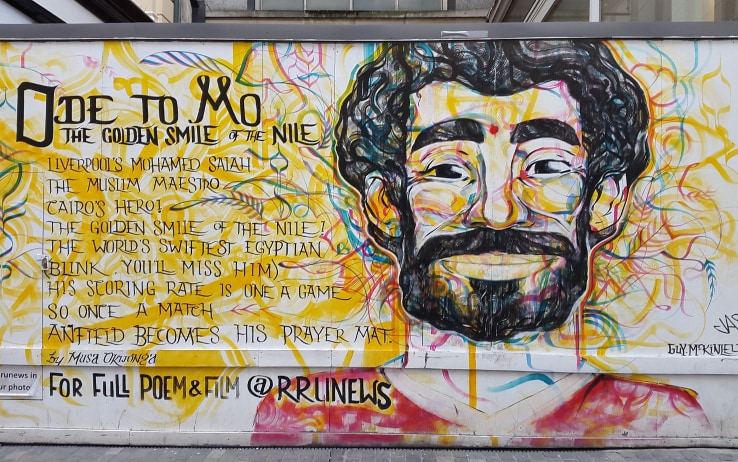 ODE TO MO
THE GOLDEN SMILE OF THE NILE
LIVERPOOL'S MOHAMED SALAH
THE MUSLIM MAESTRO
CAIRO'S HERO!
THE GOLDEN SMILE OF THE NILE!
THE WORLD'S SWIFTEST EGYPTIAN
(BLINK, YOU'LL MISS HIM)
HIS SCORING RATE IS ONE A GAME
SO ONCE A MATCH
ANFIELD BECOMES HIS PRAYER MAT.
by MUSA OKWONGA
FOR FULL POEM & FILM @RRUNEWS
runews in
ur photo
GUY.MCKINLEY